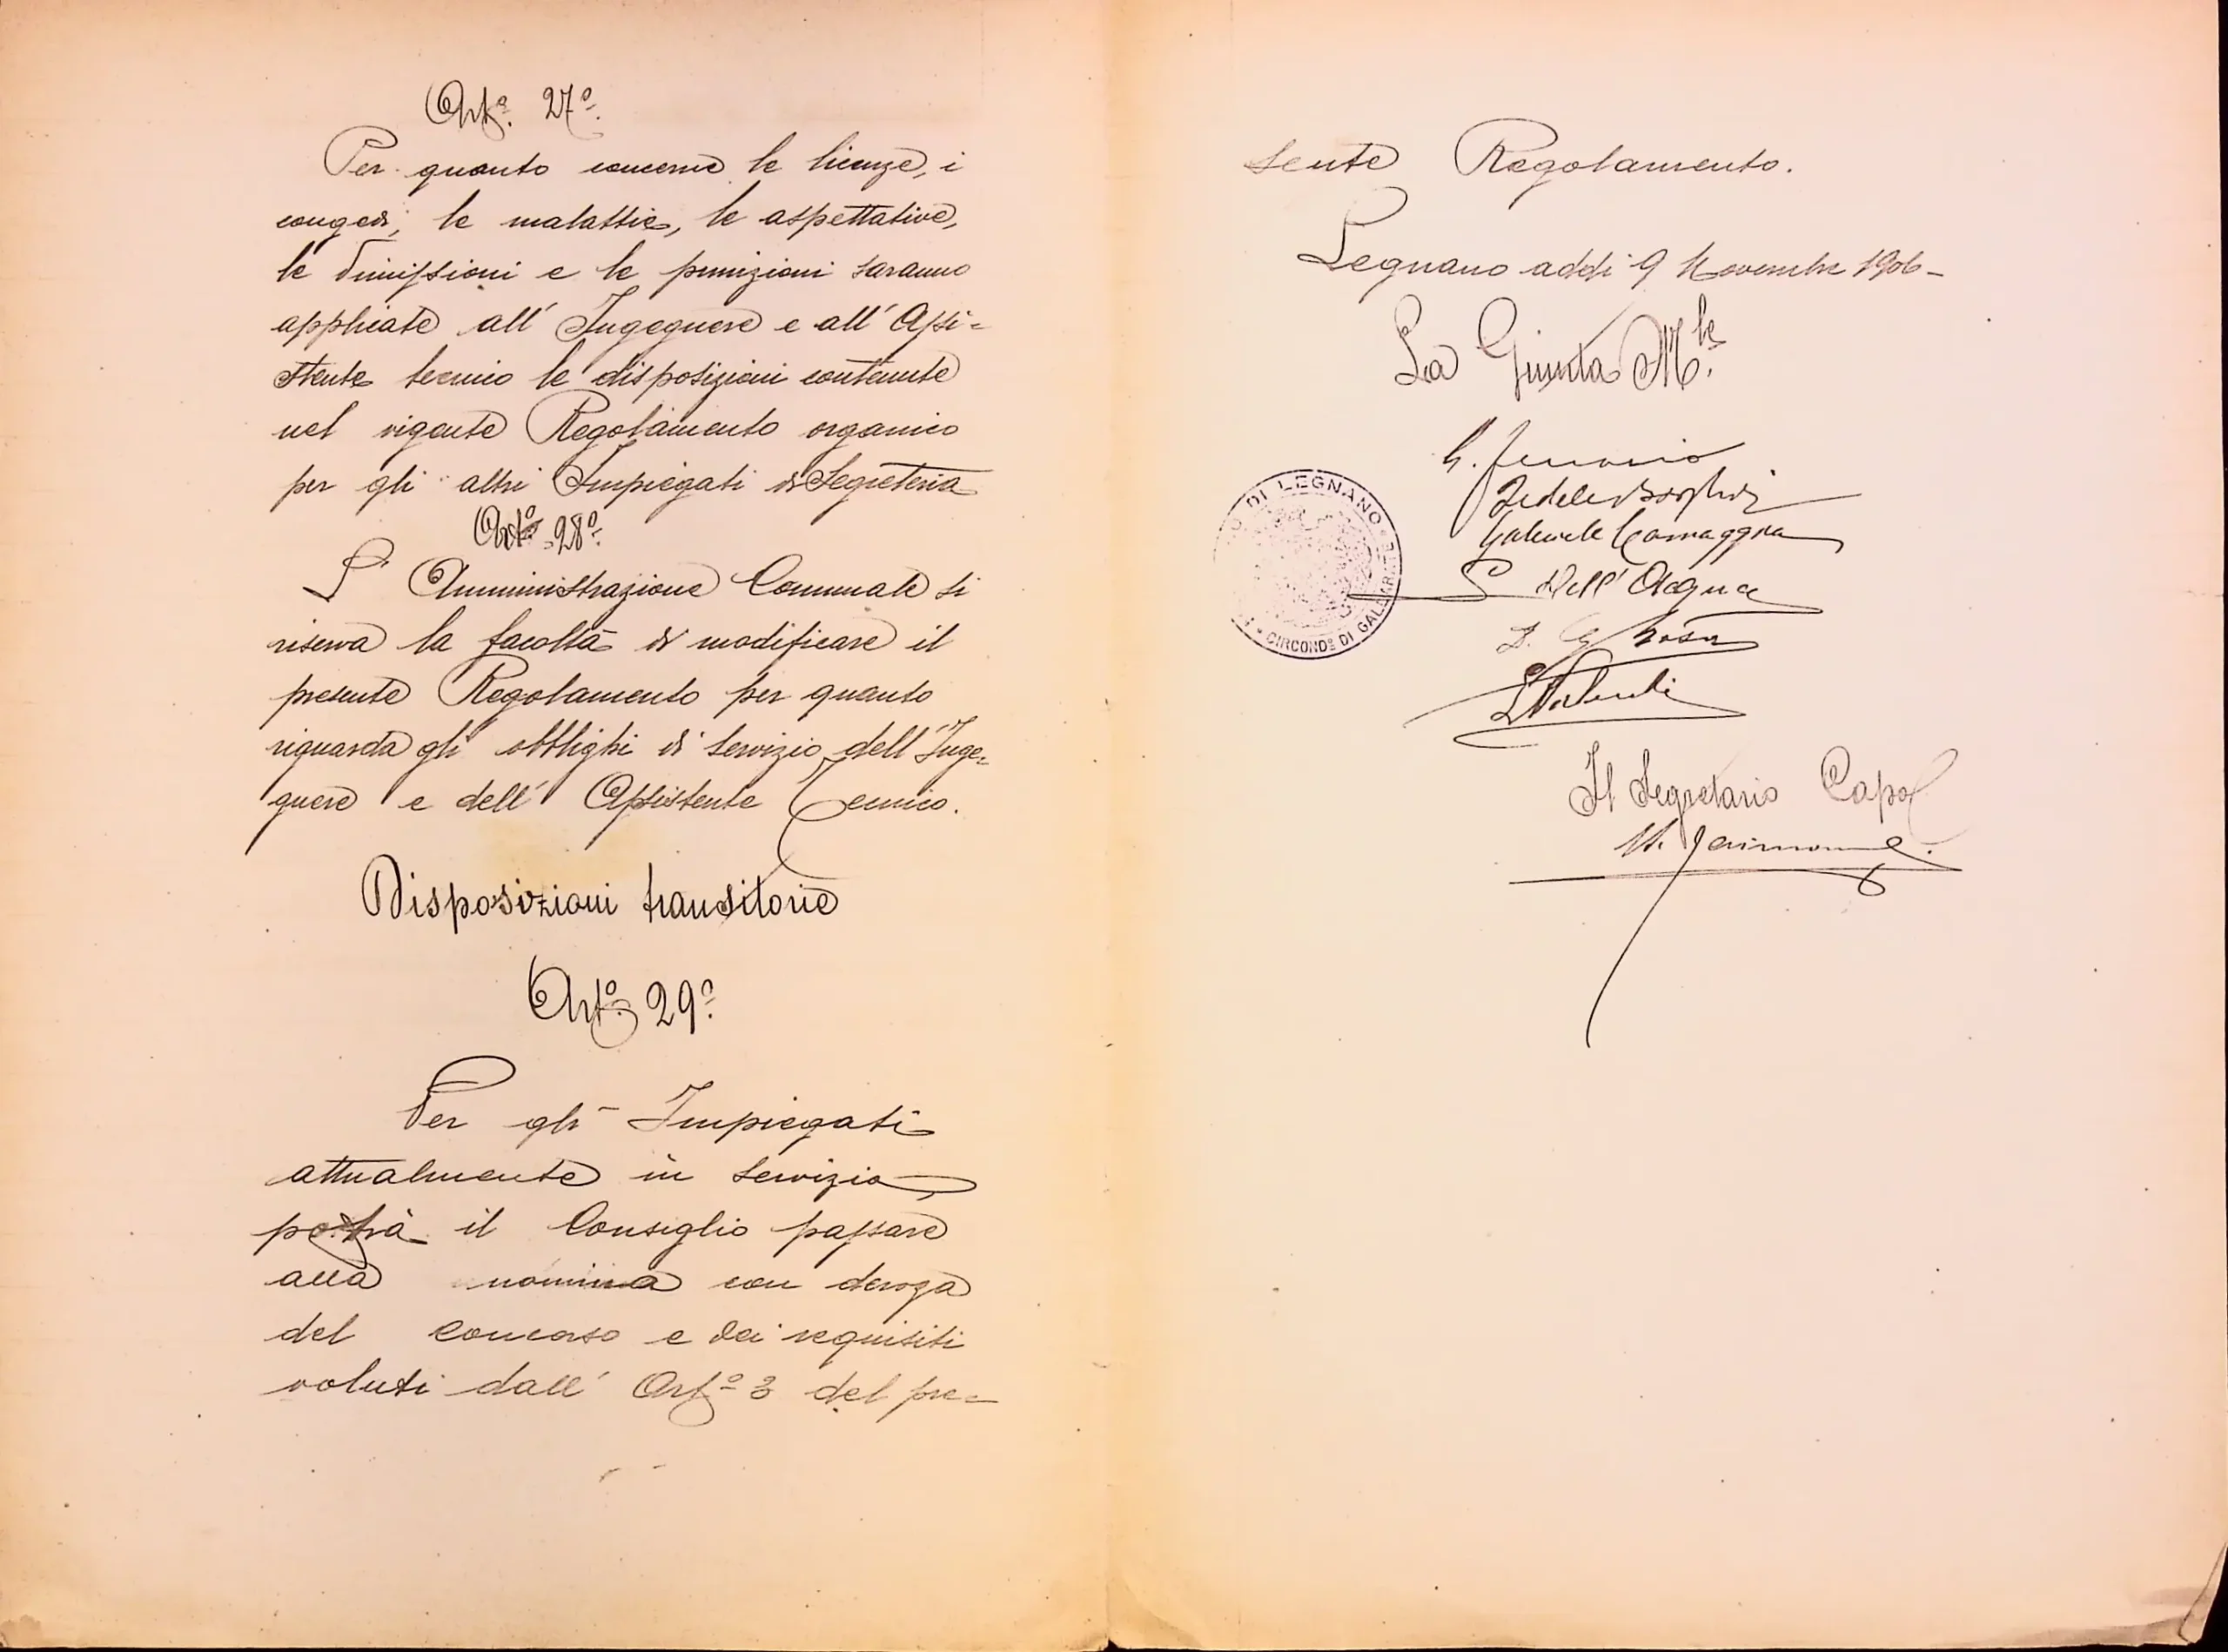 Art.º 27º
Per quanto concerne le licenze, i
congedi, le malattie, le aspettative,
le dimissioni e le punizioni saranno
applicate all' Ingegnere e all' Assi=
stente tecnico le disposizioni contenute
nel vigente Regolamento organico
per gli altri Impiegati di Segreteria
Artº 28º
L' Amministrazione Comunale si
riserva la facoltà di modificare il
presente Regolamento per quanto
riguarda gli obblighi di servizio dell' Inge=
gnere e dell' Assistente Tecnico.
Disposizioni transitorie
Artº 29º
Per gli Impiegati
attualmente in servizio,
potrà il Consiglio passare
alla nomina con deroga
del concorso e dei requisiti
voluti dall' Artº 3 del pre=
sente Regolamento.
Legnano addì 9 Novembre 1906-
La Giunta M.le
Fedele Borghi
DI LEGNANO
Gabriele
Dell' Acqua
CIRCONDº DI GALLAR
Il Segretario Capo